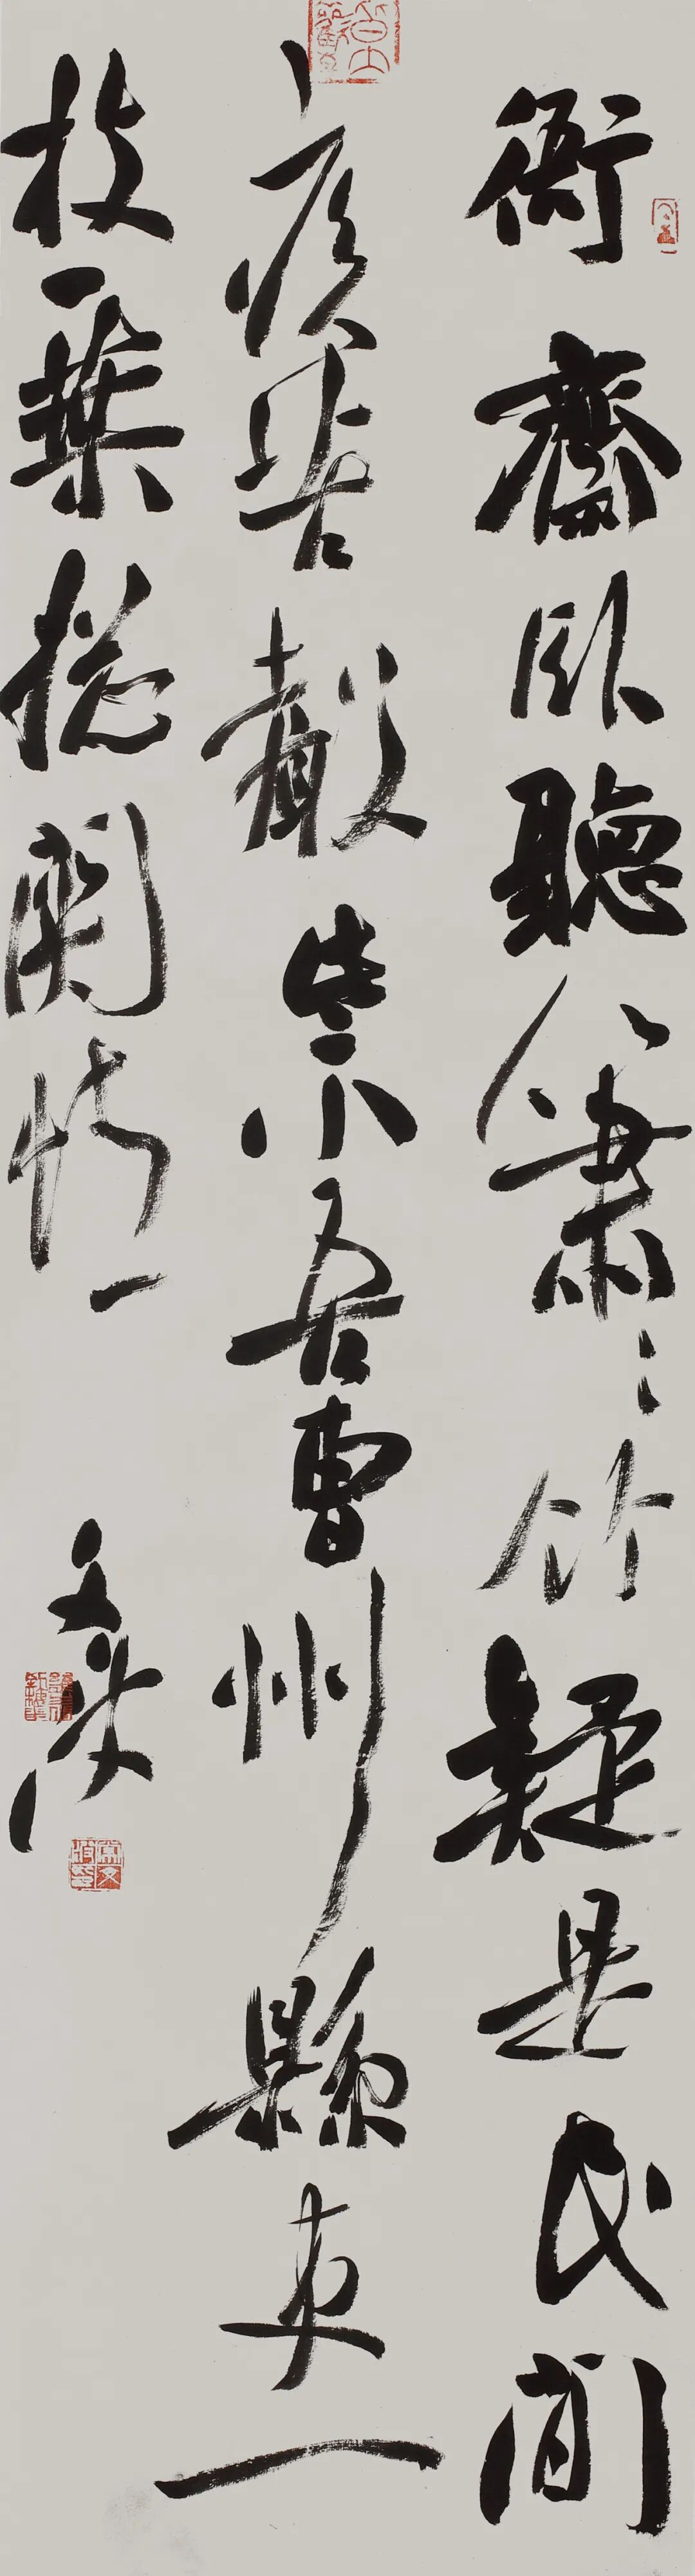 衙齋臥聽蕭々竹疑是民間
疾苦聲些小吾曹州縣吏一
枝一葉總關情